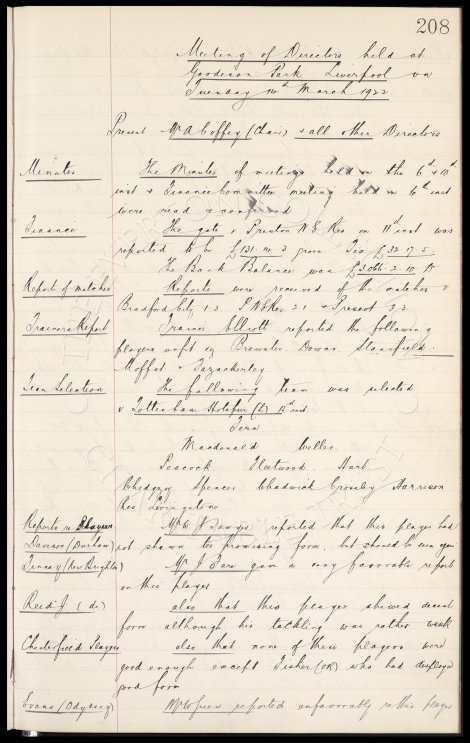 208
Meeting of Directors held at
Goodison Park Liverpool on
Tuesday 14th March 1922
Present Mr A Coffey (Chair) & all other Directors
Minutes The Minutes of meetings held on the 6th & 10th
inst & Finance Committee meeting held on 6th inst
were read & confirmed
Finance The gate v Preston N E Res on 11th inst was
reported to be £131. 14. 3 gross Tax £32. 17. 5
The Bank Balance was £3,066. 2. 10 Dr
Reports of matches Reports were received of the matches v
Bradford City 1.3 P N E Res. 2.1 & Prescot 3.3
Trainers Report Trainer Elliott reported the following
players unfit eg Brewster Downs Stansfield
Moffat & Fazackerley
Team Selection The following team was selected
v Tottenham Hotspur (L) inst
Fern
Macdonald
Peacock Fleetwood Hart
Chedgzoy Spencer Chadwick Crossley Harrison
Res Livingstone
Reports re Players Mr W Sawyer reported that this player had
Davison (Durham) not shown too promising form, but should be seen again
(New Brighton) Mr J gave a very favorable report
on this player
Reed J (do) also that this player showed decent
form although his tackling was rather weak
Chesterfield Players also that none of these players were
good enough except Fisher (OR) who had displayed
good form
Evans (Odyssey) Mr W Green reported unfavorably re this player